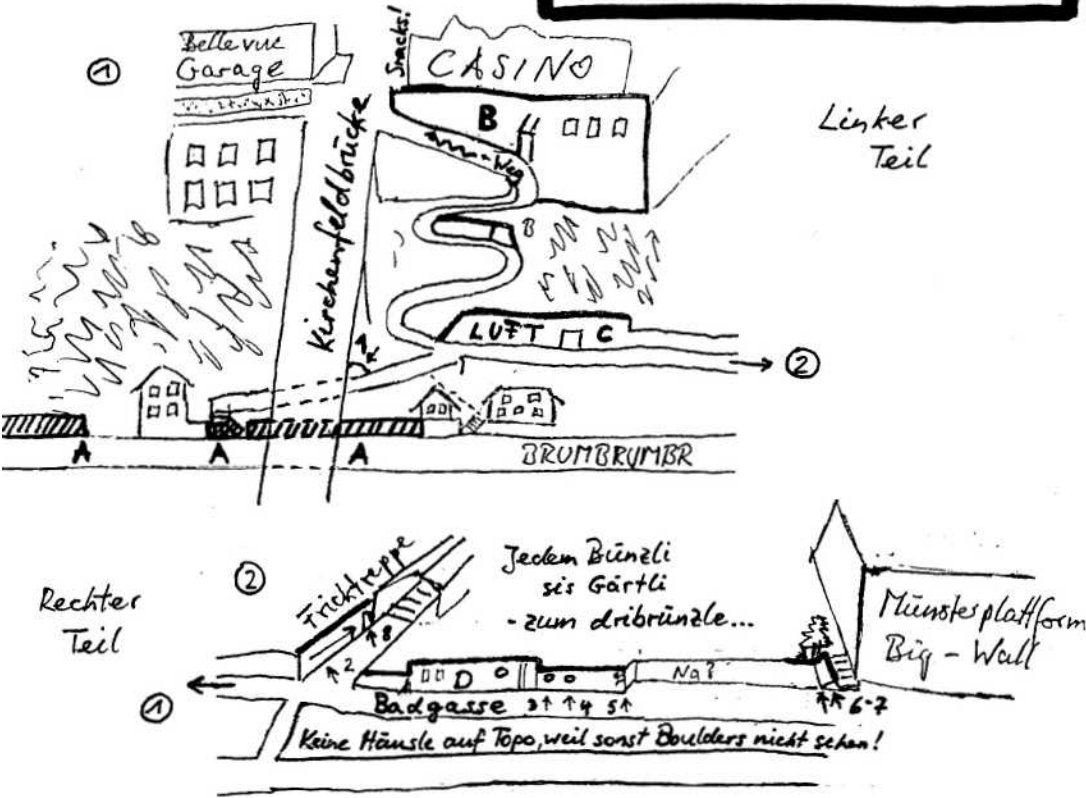 ①
Bellevue
Garage
Snacks!
CASINO
Linker
Teil
B
Weg
Kirchenfeldbrücke
B
LUFT C
1
→ ②
A A A
BRUMBRUMBR
Rechter
Teil
②
Frichtreppe
Jedem Bünzli
sis Gärtli
- zum dribrünzle...
Münsterplattform
Big - Wall
8
2
D
Naß
①
Badgasse 3↑ ↑4 5↑
6-7
Keine Häusle auf Topo, weil sonst Boulders nicht sehen!